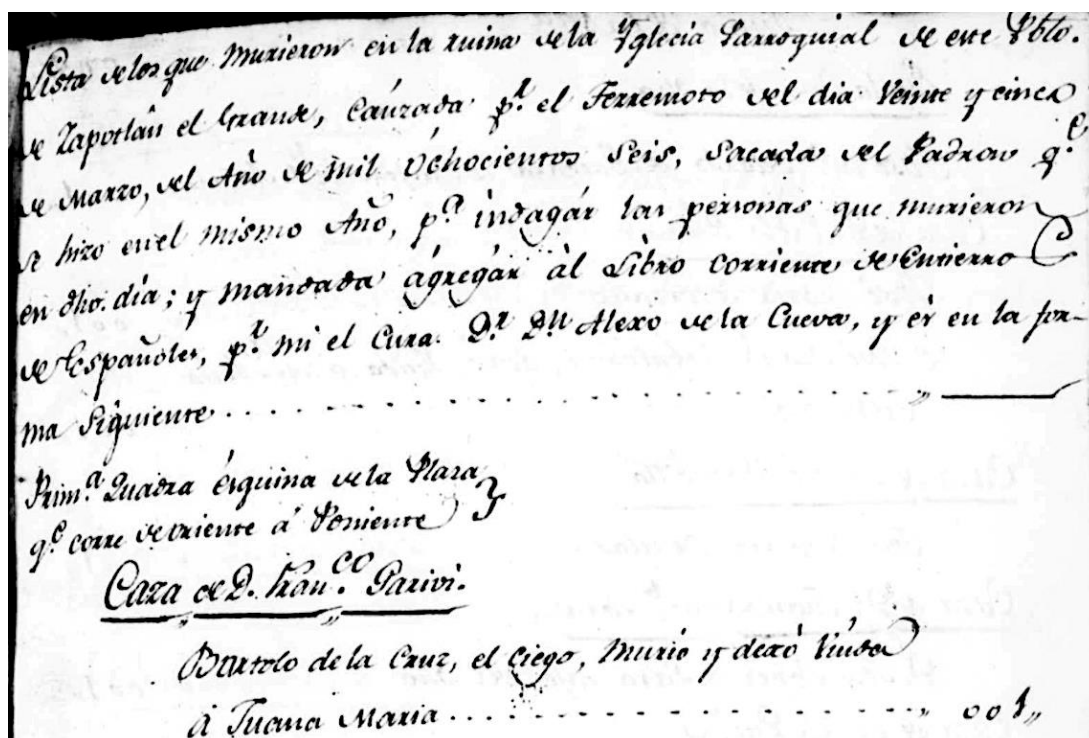 Lista de los que Murieron en la ruina de la Yglecia Parroquial de este Pblo.
de Zapotlán el Grande, Cauzada pr. el Terremoto del dia Veinte y cinco
de Marzo, del Año de mil Ochocientos Seis, Sacada del Padron qe.
se hizo en el mismo Año, pa. indagár las personas que murieron
en dho. dia; y mandada ágregár àl Libro corriente de Entierro
de Españoles, pr. mi el Cura. Dr. Dn. Alexo de la Cueva, y és en la for-
ma Siguiente
Prima. Quadra ésquina de la Plaza
qe. corre de oriente á Poniente
Caza de D. Franco.
Bartolo de la Cruz, el Ciego, Murió y dexò Viuda
á Juana Maria 001,,